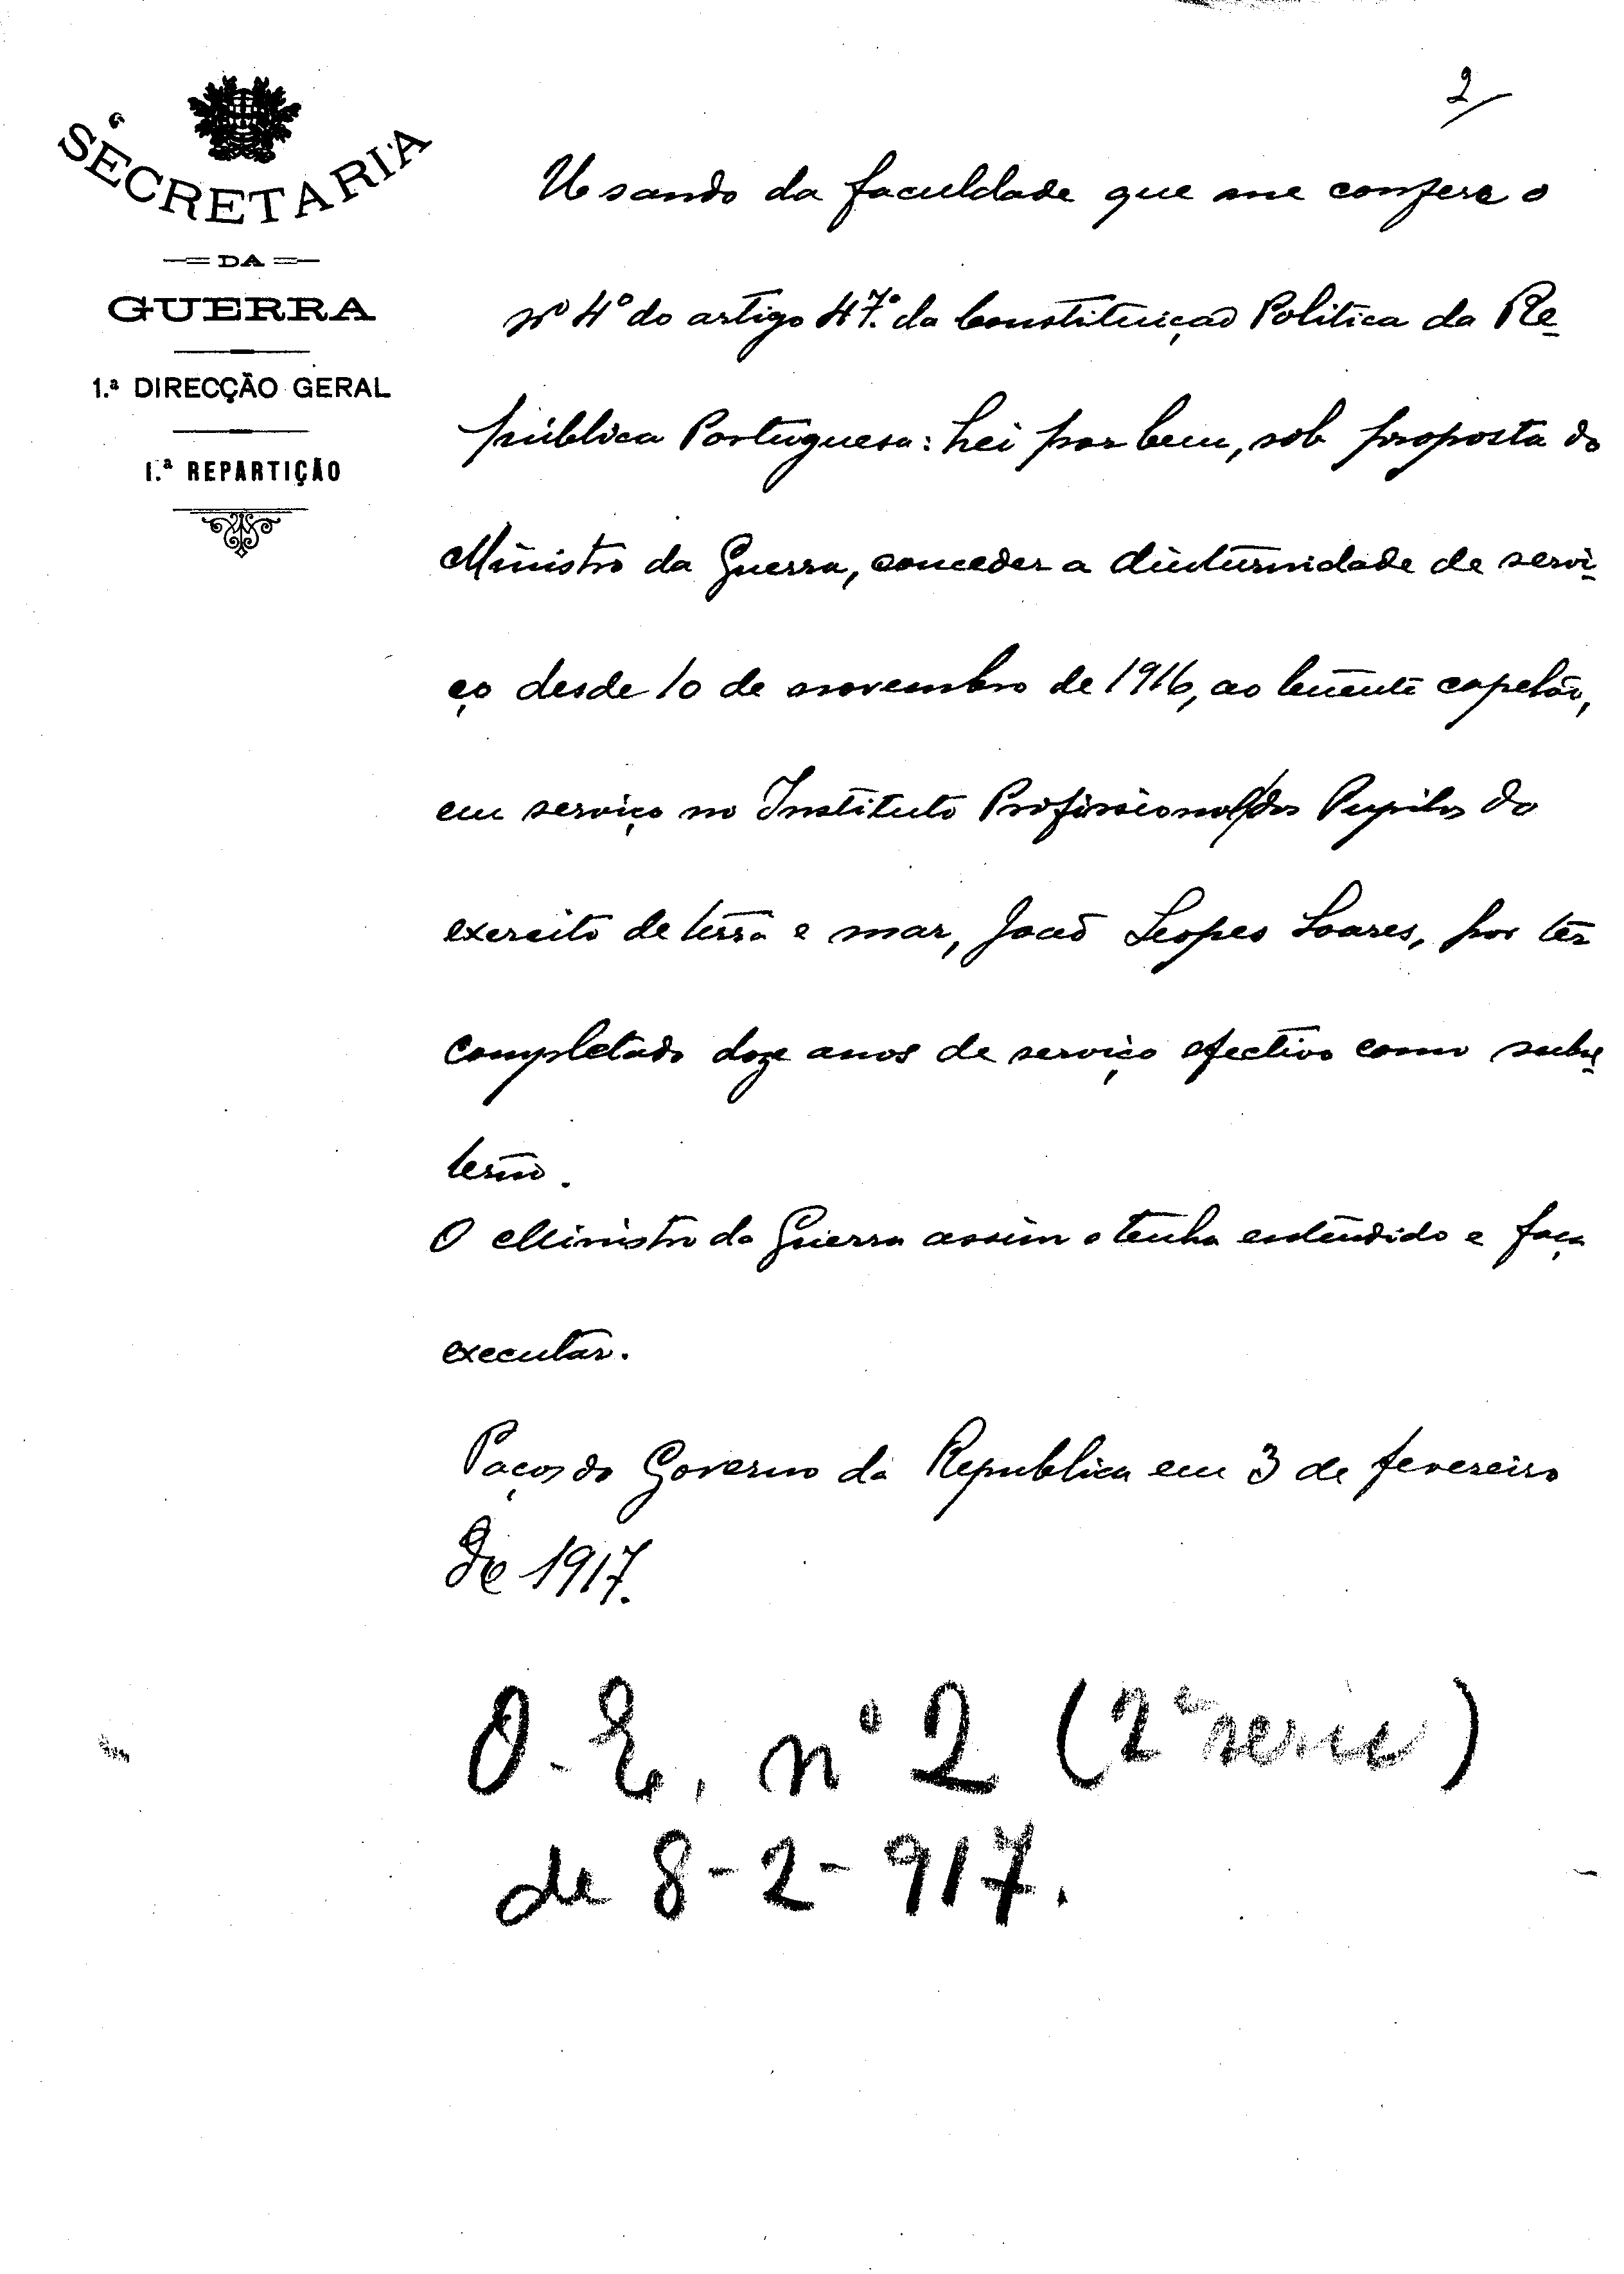 SECRETARIA
DA
GUERRA
1.ª DIRECÇÃO GERAL
1.ª REPARTIÇÃO
2
Usando da faculdade que me confere o
nº 4º do artigo 47.º da Constituição Politica da Re-
pública Portuguesa: hei por bem, sob proposta do
Ministro da Guerra, conceder a diuturnidade de servi-
ço desde 10 de novembro de 1916, ao tenente capelão,
em serviço no Instituto Profissional dos Pupilos do
exercito de terra e mar, João Lopes Soares, por ter
completado doze anos de serviço efectivo como subal-
terno.
O Ministro da Guerra assim o tenha entendido e faça
executar.
Paços do Governo da Republica em 3 de fevereiro
de 1917.
O. E. nº 2 (2ª serie)
de 8-2-917.